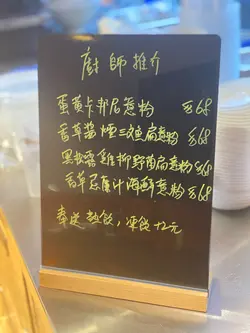 廚師推介
蛋黃卡邦尼意粉 $68
香草醬煙三文魚扁意粉 $68
黑松露雞柳野菌扁意粉 $68
香草忌廉汁海鮮意粉 $68
奉送熱飲，凍飲+2元